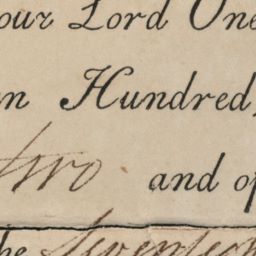 our Lord One
n Hundred,
two and of
he Seventeen